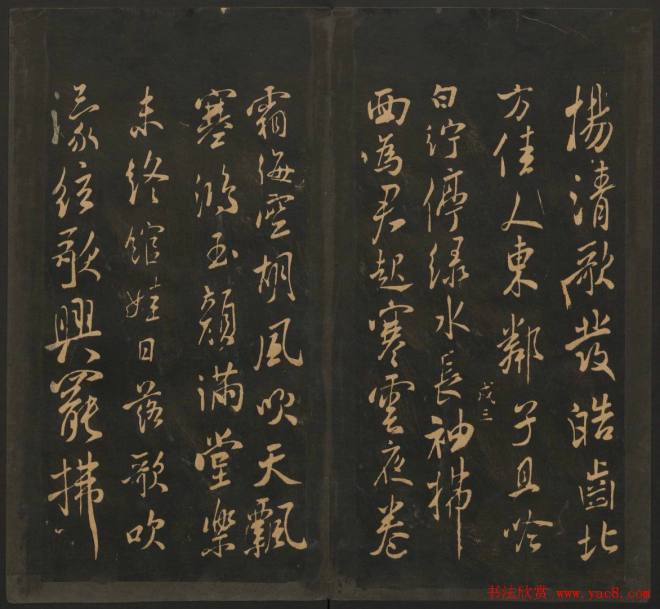 揚清歌發皓齒北
方佳人東鄰子且吟
白紵停綠水長袖拂
戊三
面為君起寒雲夜卷
霜海空胡風吹天飄
塞鴻玉顏滿堂樂
未終館娃日落歌吹
濛弦歌興罷拂
书法欣赏 www.yac8.com